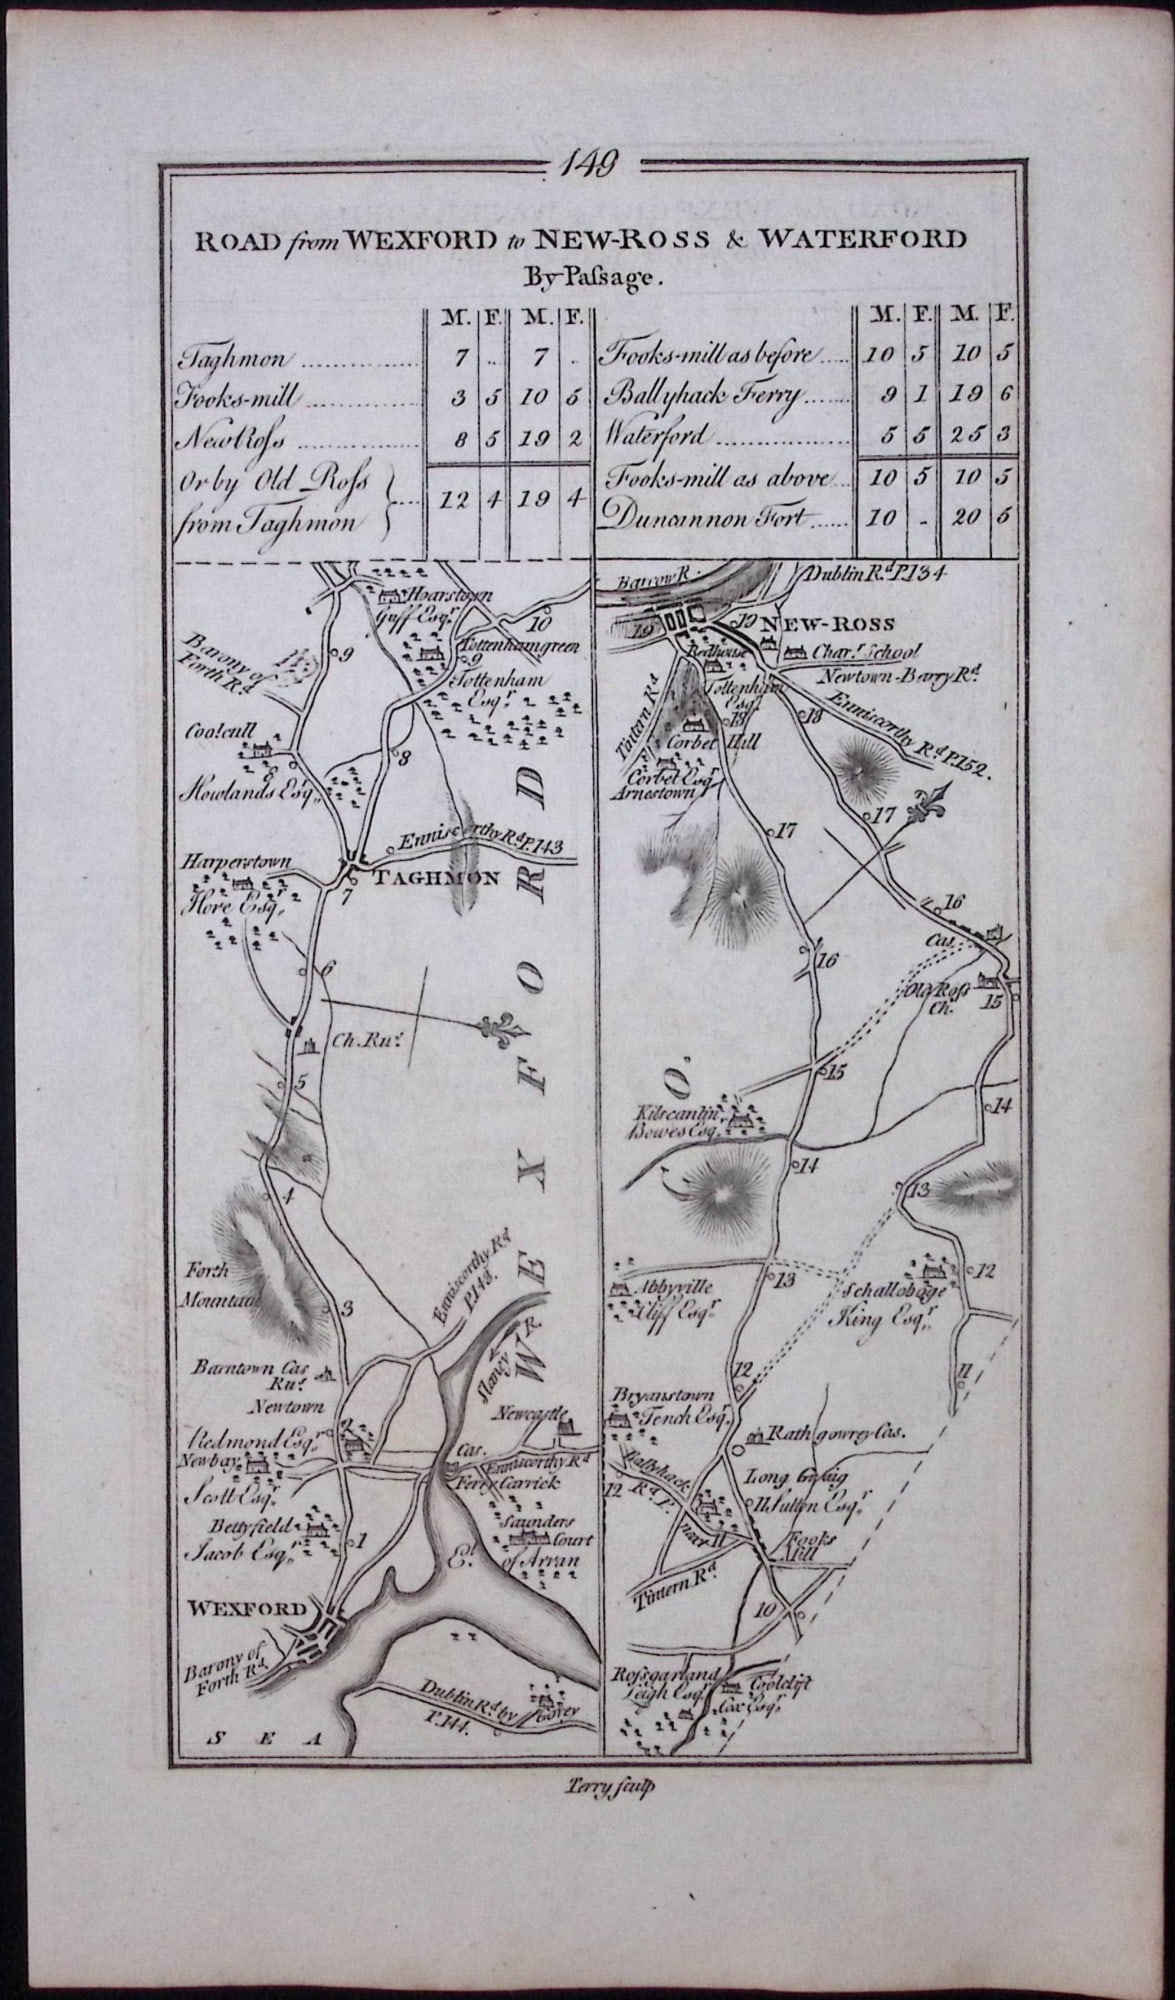 149
ROAD from WEXFORD to NEW-ROSS & WATERFORD
By Paſsage.
M. F. M. F.
Taghmon 7 .. 7 .
Fooks-mill 3 5 10 5
New Roſs 8 5 19 2
Or by Old Roſs
from Taghmon 12 4 19 4
M. F. M. F.
Fooks-mill as before 10 5 10 5
Ballyhack Ferry 9 1 19 6
Waterford 5 5 25 3
Fooks-mill as above 10 5 10 5
Duncannon Fort 10 - 20 5
Hoarstown
Goff Esqr.
10
Tottenhamgreen
9
Tottenham
Esqr.
9
Barony of
Forth Rd.
Coolcull
8
Howlands Esqr.
8
Enniscorthy Rd. P.143
Harperstown
Hore Esqr.
TAGHMON
7
6
Ch. Rus.
5
4
Forth
Mountain
3
Barntown Cas
Rus.
Newtown
Redmond Esqr.
2
Newbay
Scott Esqr.
Bettyfield
Jacob Esqr.
1
WEXFORD
Barony of
Forth Rd.
SEA
WEXFORD
Enniscorthy Rd
P.143.
Slaney R.
Newcastle
Cas.
Enniscorthy Rd
Ferry Carrick
Saunders
Court
El. of Arran
Dublin Rd. by Gorey
P.144.
Barrow R.
Dublin Rd. P.134
19
19
NEW-ROSS
Redhouse
Char.r School
Tottenham
Esqr.
Newtown-Barry Rd.
Tintern Rd
18
18
Enniscorthy Rd. P.152.
Corbet Hill
Corbet Esqr.
Arnestown
17
17
16
Cas.
16
Old Roſs
Ch.
15
15
O.
14
Kilscanlin
Bowes Esqr.
14
13
Abbyville
Cliff Esqr.
13
Schallobage
King Esqr.
12
12
11
Bryanstown
Tench Esqr.
Rathgowrey Cas.
Ballyhack
Rd. P.
12
Long Graig
11 Sutton Esqr.
11
Fooks
Mill
Tintern Rd.
10
Roſsgarland
Leigh Esqr.
Coolclift
Cox Esqr.
Terry sculp